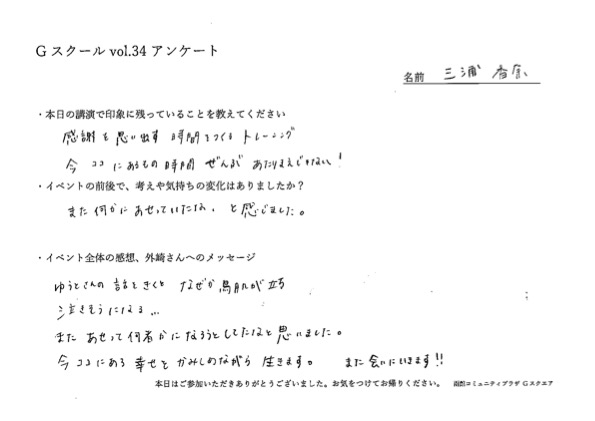 G スクール vol.34 アンケート
名前 三浦 香奈
・本日の講演で印象に残っていることを教えてください
感謝を思い出す 時間をつくる トレーニング
今 ココ にあるもの 時間 ぜんぶ あたりまえじゃない!
・イベントの前後で、考えや気持ちの変化はありましたか?
また 何かに あせっていたな、と感じました。
・イベント全体の感想、外崎さんへのメッセージ
ゆうとさんの 話をきくと なぜか 鳥肌が立ち
泣きそうになる…
また あせって 何者かに なろうとしてたなと 思いました。
今 ココにある 幸せを かみしめながら 生きます。 また 会いにいきます!!
本日はご参加いただきありがとうございました。お気をつけてお帰りください。 函館コミュニティプラザ G スクエア